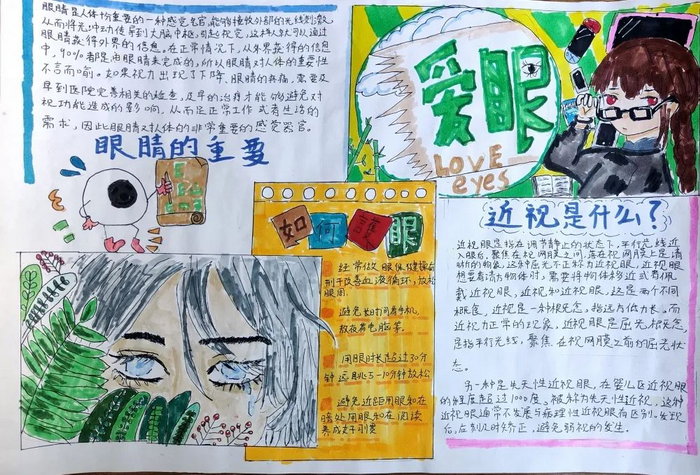 眼睛是人体的重要的一种感觉器官,能够接收外部的光线刺激,
从而将光冲动传导到大脑中枢,引起视觉,这样人就可以通过
眼睛获得外界的信息。在正常情况下,从外界获得的信息
中,90%都是由眼睛来完成的,所以眼睛对人体的重要性
不言而喻。如果视力出现了下降、眼睛的疼痛,需要及
早到医院完善相关的检查,及早的治疗才能够避免对
视功能造成的影响,从而走正常工作或者生活的
需求,因此眼睛对人体的非常重要的感觉器官。
眼睛的重要
爱眼
LOVE
eyes
如何護眼
经常做眼保健操有
利于改善血液循环,放松
眼周。
避免长时间看手机,
熬夜看电脑等。
用眼时长超过30分
钟远眺5-10分钟放松
避免近距用眼和在
暗处用眼和在阅读
养成好习惯
近视是什么?
近视眼是指在调节静止的状态下,平行光线近
入眼后,聚焦在视网膜之间,落在视网膜上是清
晰的物象,这种屈光不正称为近视眼,近视眼
想要看清方物体时,需要将物体移近或看佩
戴近视眼,近视和近视眼,这是两个不同
概念,近视是一种概念,指远方低力长。而
近视力正常的现象,近视眼是屈光概念,
是指平行光线,聚焦在视网膜之前的屈光状
态。
另一种是先天性近视眼,在婴儿区近视眼
的程度超过1000度,被称为先天性近视,这种
近视眼通常不发展与病理性近视眼有区别。发现
后,应到及时矫正,避免弱视的发生。